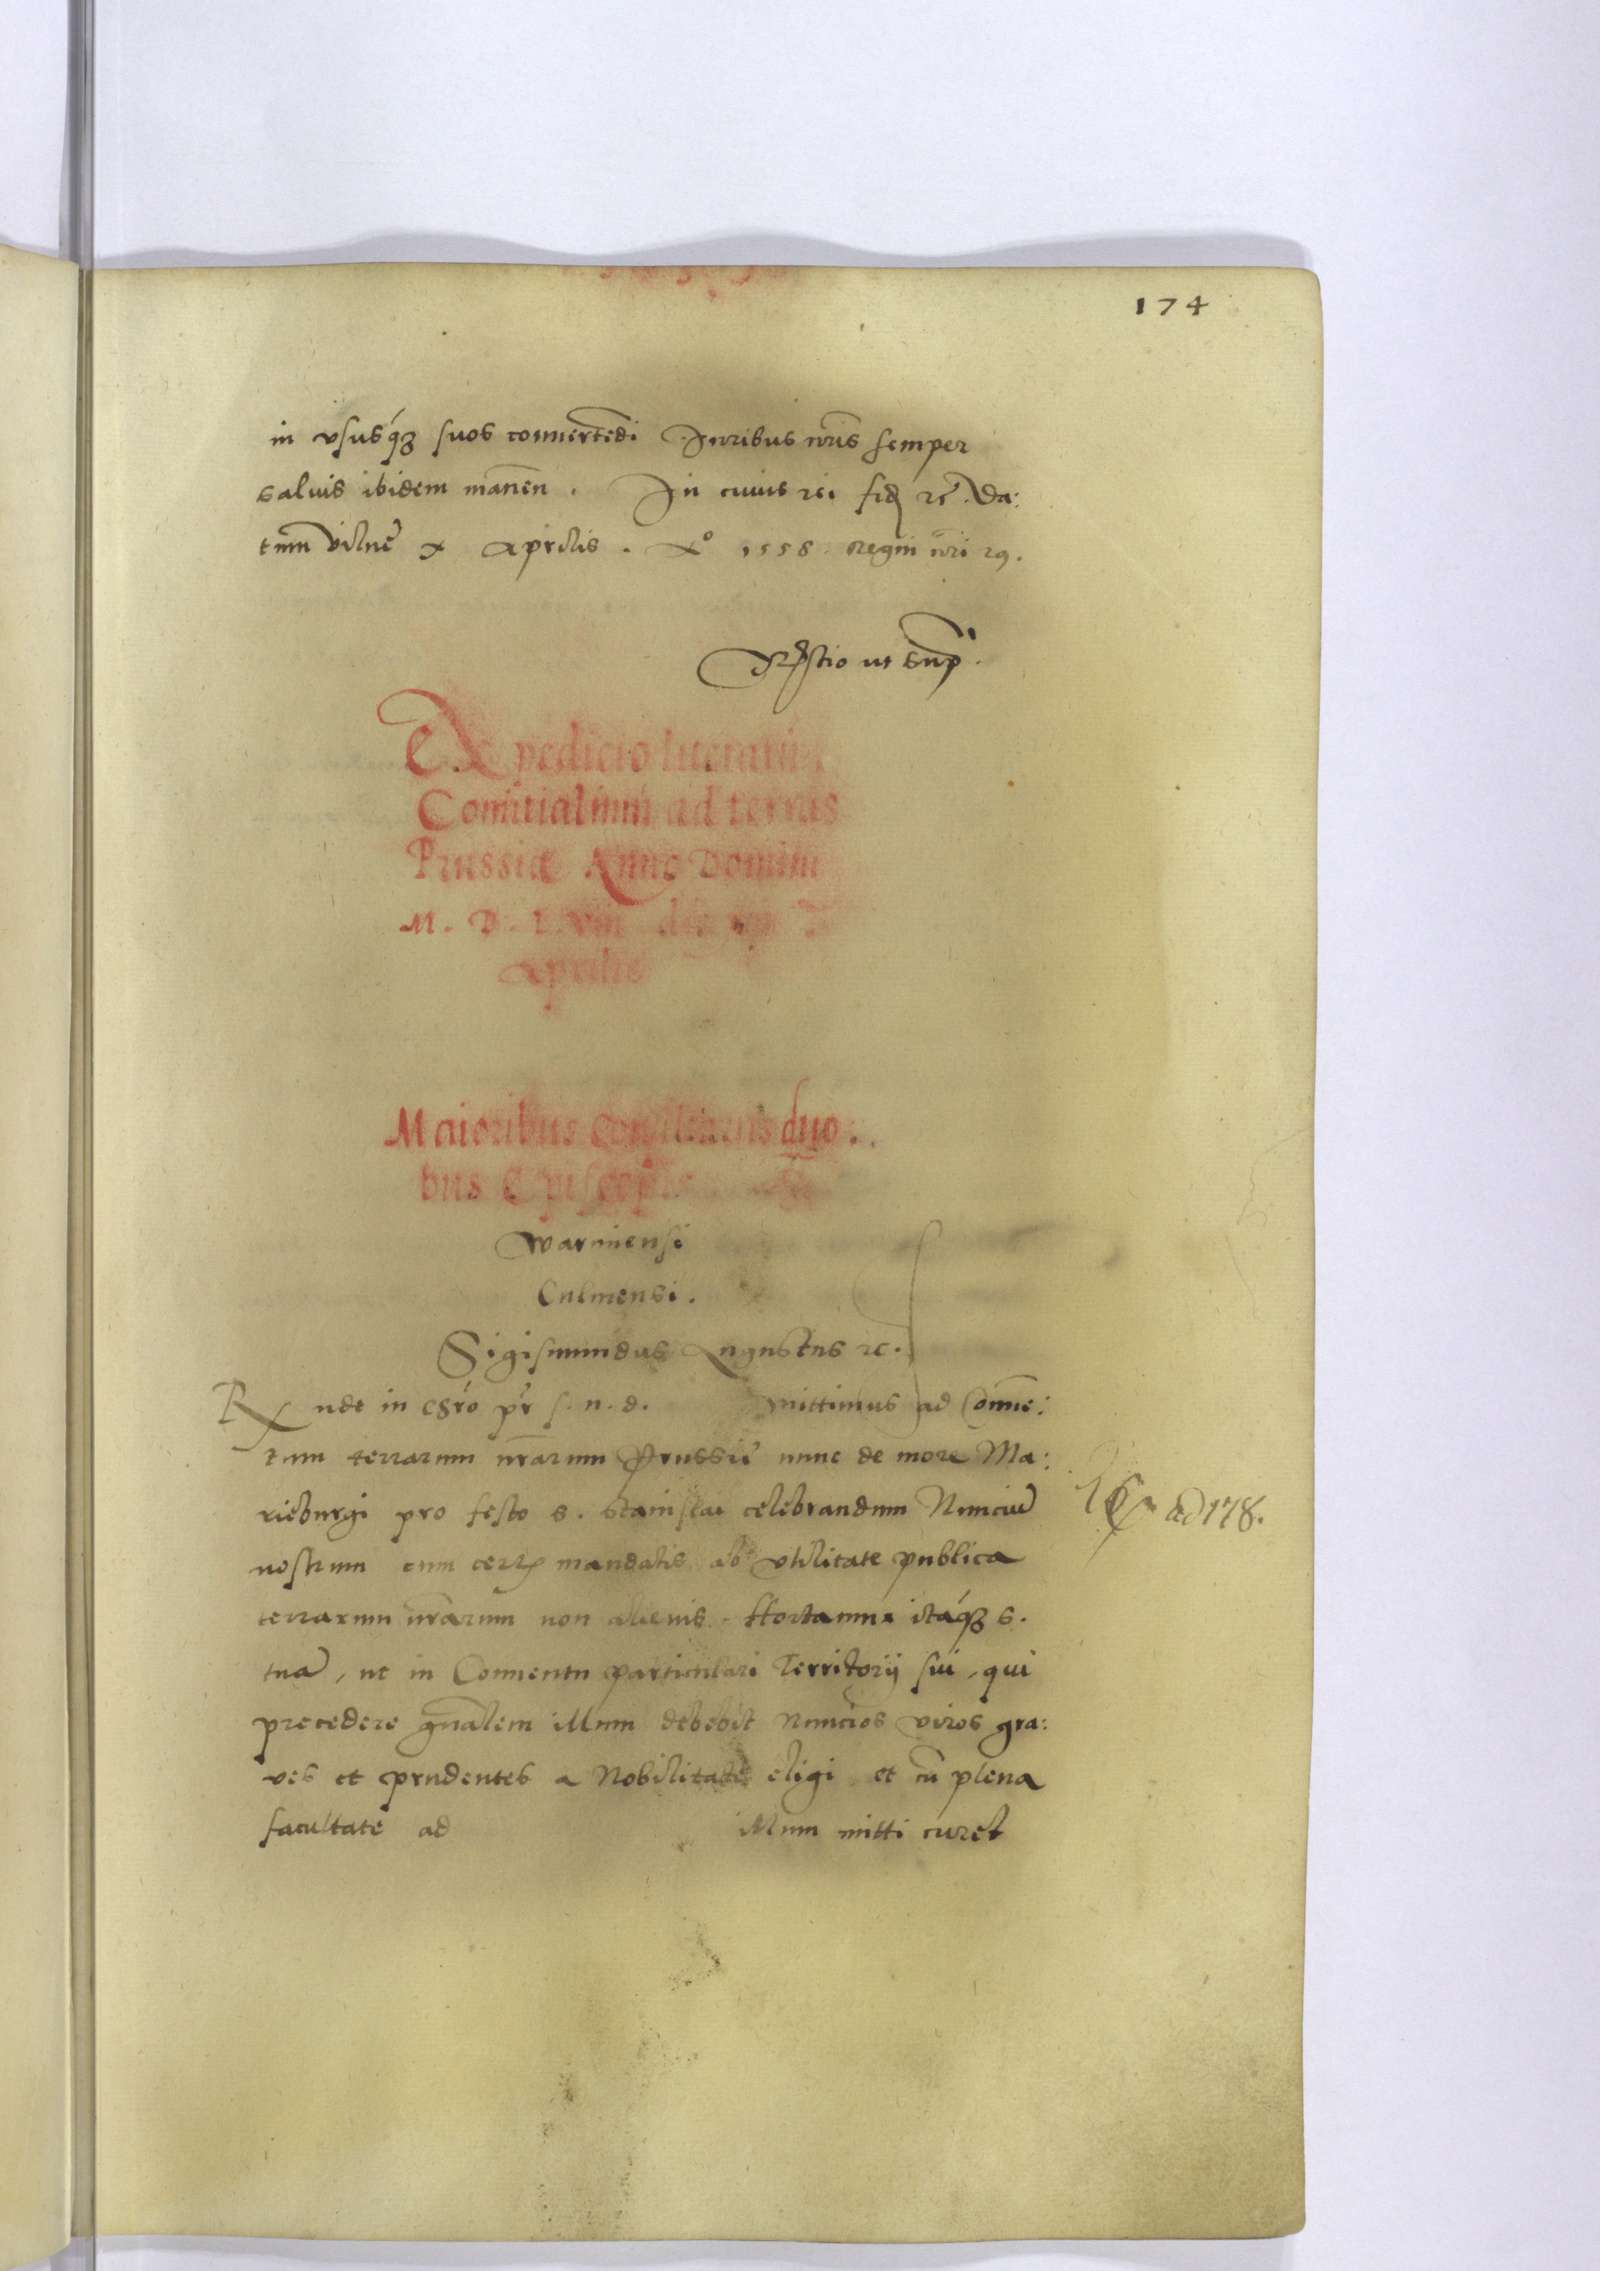 174
in vsusq́ȝ suos conuertēdi Juribus nr̄is semper
saluis ibidem manen̄. In cuius rei fid rc̄. Da:
tum Vilnē x Aprilis. Aº 1558 Regni nr̄i 29.
Rel̄tio ut sup̄.
Expedicio literarum
Comitialium ad terras
Prussiæ Anno Domini
M. D. L. VIII
Aprilis
Maioribus Consiliariis duo.
bus Episcopis
Warmiensi
Culmensi.
Sigismundus Augustus rc.
Rnde in chr̄o pr̄ s. n. d. mittimus ad Conue:
tum terrarum nr̄arum Prussiē nunc de more Ma:
rieburgi pro festo S. Stanislai celebrandum Nunciū
nostrum cum certis mandatis ab vtilitate publica
terrarum nr̄arum non alienis. Hortamur itáqȝ S.
tuā, ut in Conuentu particulari Territorij sui, qui
precedere gn̄alem illum debebit Nuncios viros gra:
ves et prudentes a Nobilitate eligi et cū plena
facultate ad illum mitti curet
ad 178.